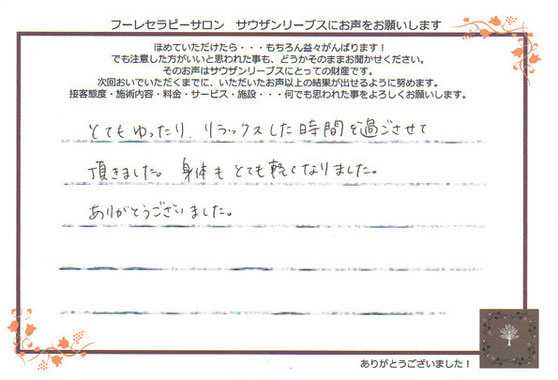 フーレセラピーサロン　サウザンリーブスにお声をお願いします
ほめていただけたら・・・もちろん益々がんばります！
でも注意した方がいいと思われた事も、どうかそのままお聞かせください。
そのお声はサウザンリーブスにとっての財産です。
次回おいでいただくまでに、いただいたお声以上の結果が出せるように努めます。
接客態度・施術内容・料金・サービス・施設・・・何でも思われた事をよろしくお願いします。
とてもゆったり、リラックスした時間を過ごさせて
頂きました。身体もとても軽くなりました。
ありがとうございました。
ありがとうございました！